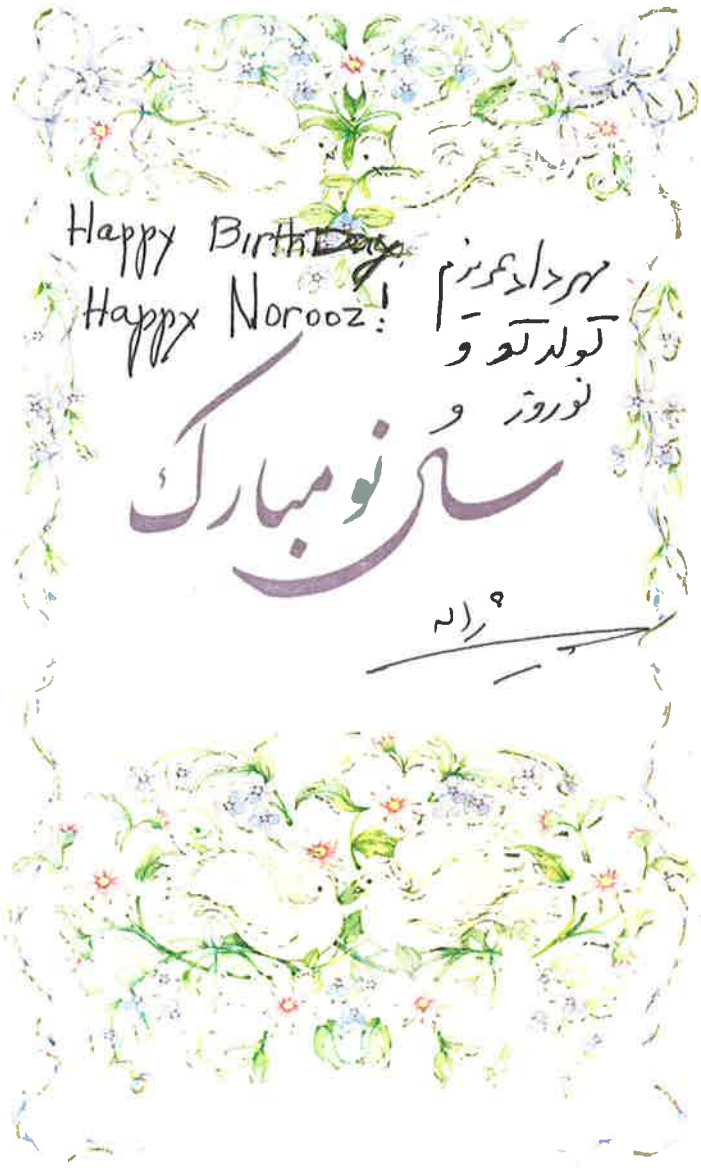 Happy Birthday
Happy Norooz!
مهرداد عزیزم
تولد تو و
نوروز و
سال نو مبارک
ژاله